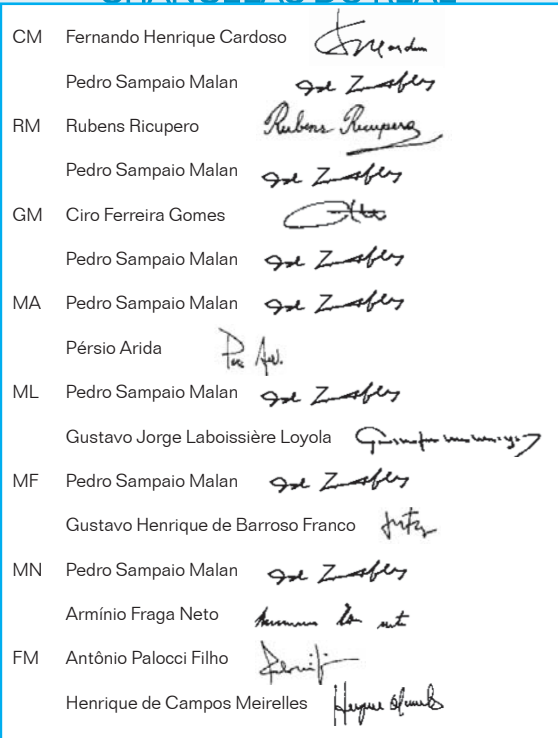 CHANCELAS DO REAL
CM Fernando Henrique Cardoso
Pedro Sampaio Malan
RM Rubens Ricupero Rubens Ricupero
Pedro Sampaio Malan
GM Ciro Ferreira Gomes
Pedro Sampaio Malan
MA Pedro Sampaio Malan
Pérsio Arida
ML Pedro Sampaio Malan
Gustavo Jorge Laboissière Loyola
MF Pedro Sampaio Malan
Gustavo Henrique de Barroso Franco
MN Pedro Sampaio Malan
Armínio Fraga Neto
FM Antônio Palocci Filho
Henrique de Campos Meirelles